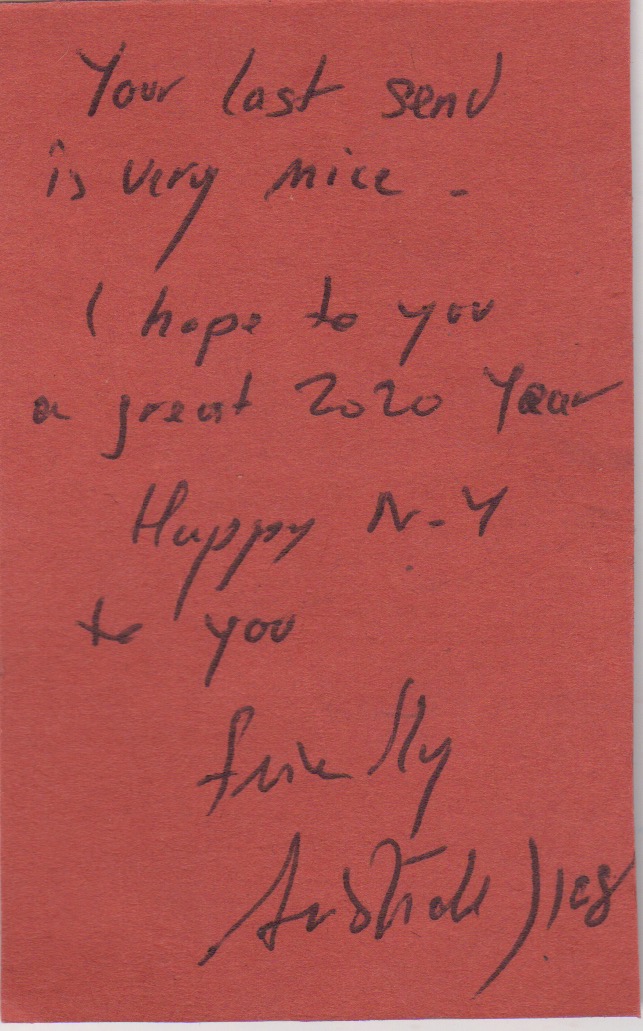 Your last send
is very nice -
I hope to you
a great 2020 Year
Happy N-Y
to you
friendly